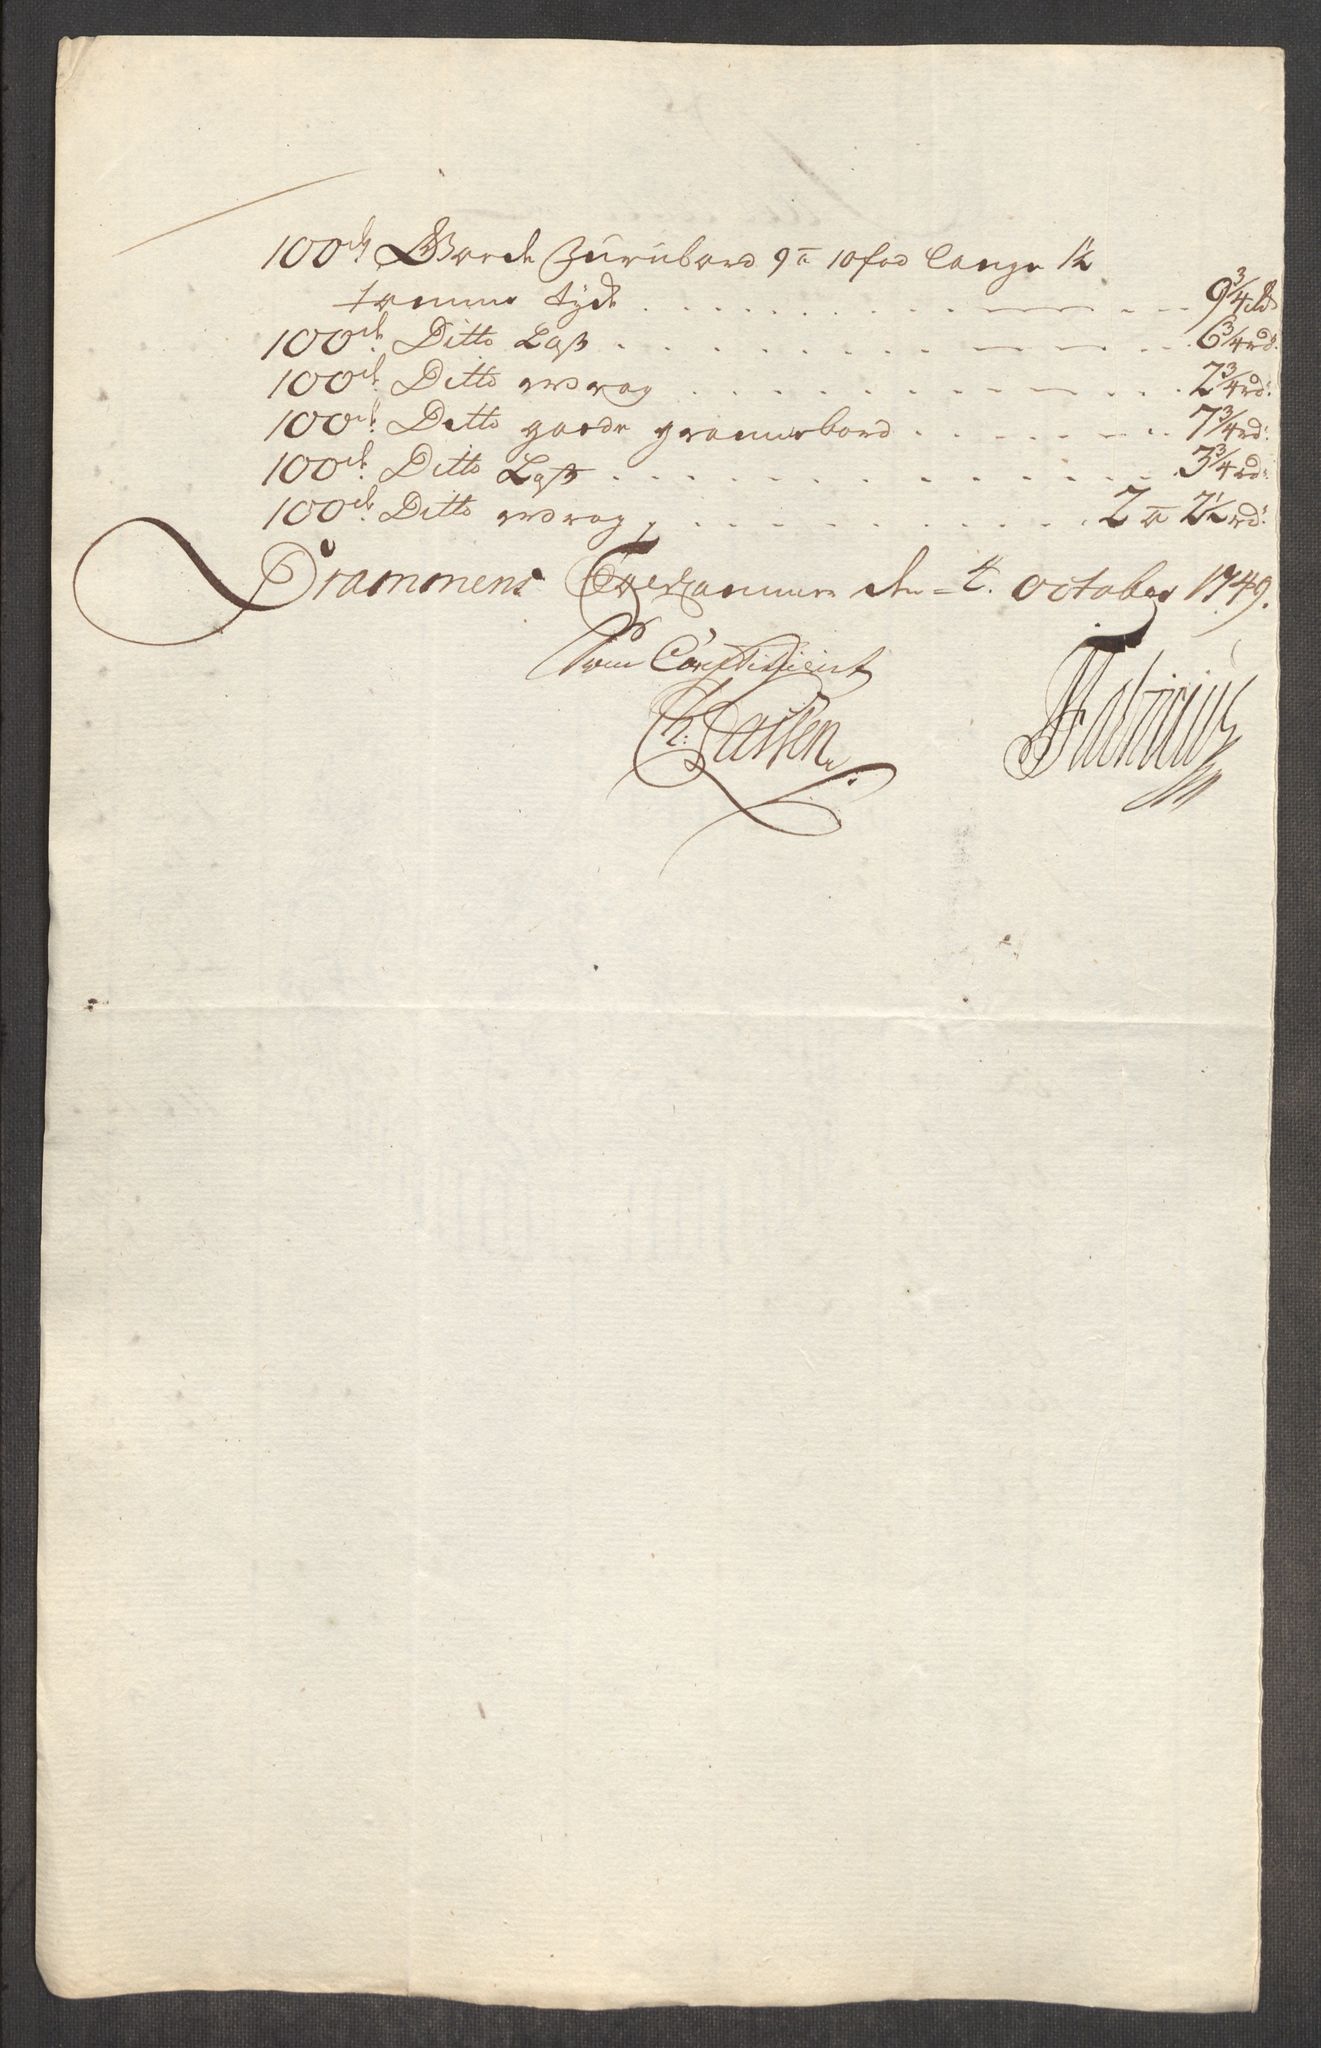 100de Goede Furubord 9 a 10 fod lange 1½
tomme tyk . . . . . . . . . 9¾ rd
100de Ditto Laſt . . . . . . . . . 6¾ rd.
100de Ditto vrag . . . . . . . . . 2¾ rd.
100de Ditto goede grannebord . . . . . . . 7¾ rd.
100de Ditto Laſt . . . . . . . . . 3¾ rd.
100de Ditto vrag . . . . . . . . 2 a 2½ rd.
Drammens Toelkammer den 4. october 1749.
Som Constitueret
Fabricius